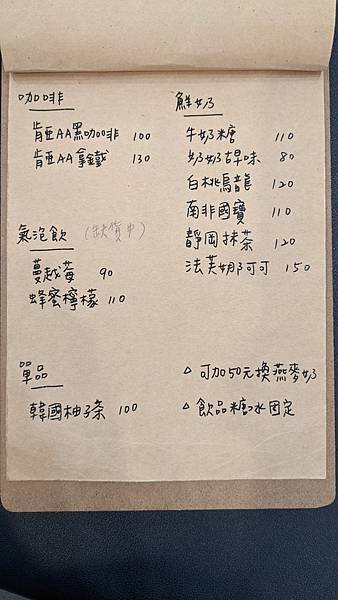 咖啡
肯亞AA黑咖啡 100
肯亞AA拿鐵 130
氣泡飲 (缺貨中)
蔓越莓 90
蜂蜜檸檬 110
單品
韓國柚子茶 100
鮮奶
牛奶糖 110
奶奶ㄟ古早味 80
白桃烏龍 120
南非國寶 110
靜岡抹茶 120
法芙娜可可 150
△可加50元換燕麥奶
△飲品糖冰固定